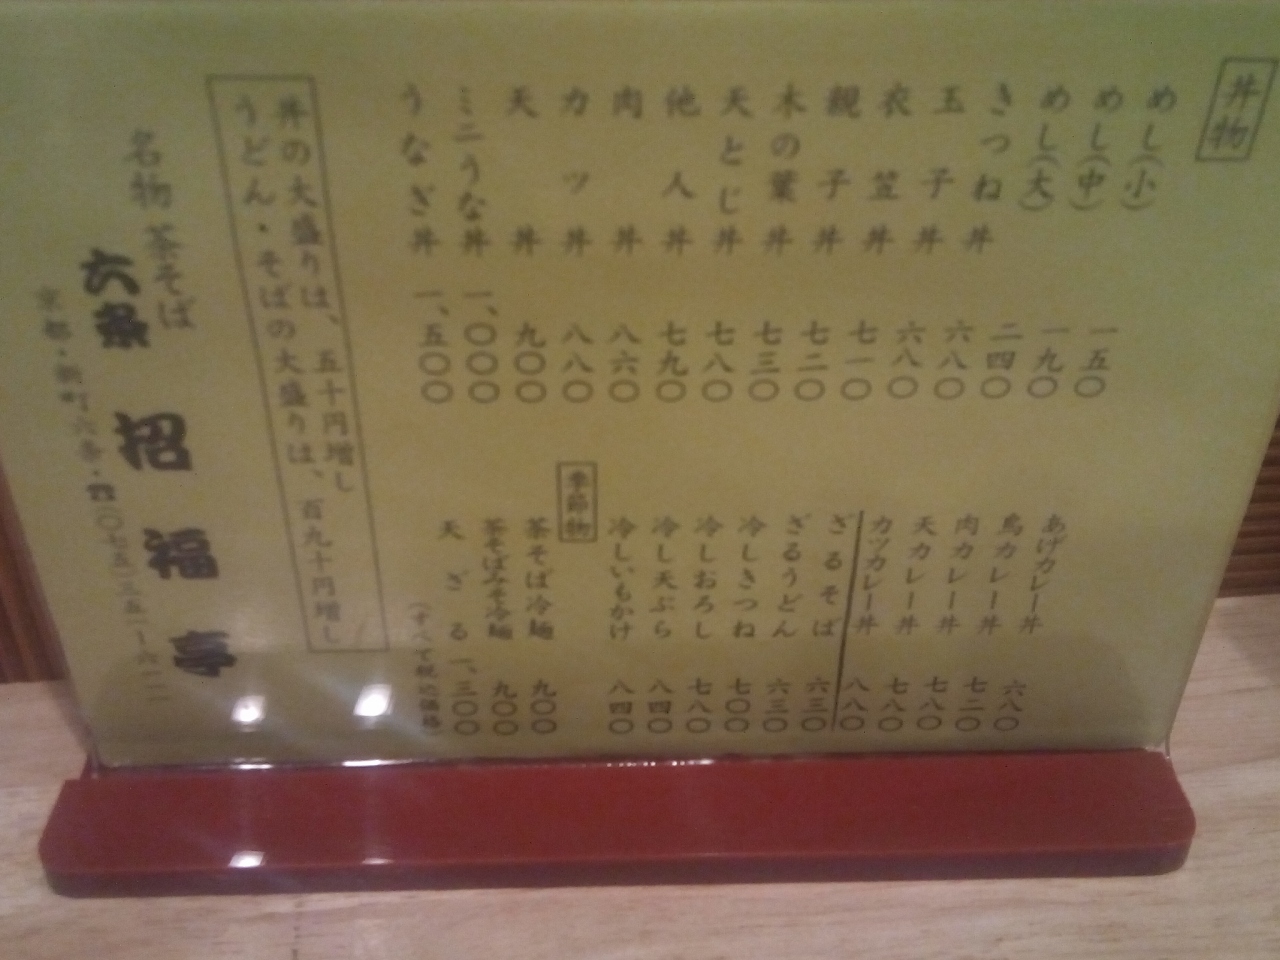 丼物
めし(小) 一五〇
めし(中) 一九〇
めし(大) 二四〇
きつね丼 六八〇
玉子丼 六八〇
衣笠丼 七一〇
親子丼 七二〇
木の葉丼 七三〇
天とじ丼 七八〇
他人丼 七九〇
肉丼 八六〇
カツ丼 八八〇
天丼 九〇〇
ミニうな丼 一、〇〇〇
うなぎ丼 一、五〇〇
あげカレー丼 六八〇
鳥カレー丼 七二〇
肉カレー丼 七八〇
天カレー丼 七八〇
カツカレー丼 八八〇
ざるそば 六三〇
ざるうどん 六三〇
冷しきつね 七〇〇
冷しおろし 七八〇
冷し天ぷら 八四〇
冷しいもかけ 八四〇
季節物
茶そば冷麺 九〇〇
茶そばみそ冷麺 九〇〇
天ざる 一、三〇〇
(すべて税込価格)
丼の大盛りは、五十円増し
うどん・そばの大盛りは、百九十円増し
名物茶そば
六条 招福亭
京都・新町六条・☎(〇七五)三五一ー六一一一